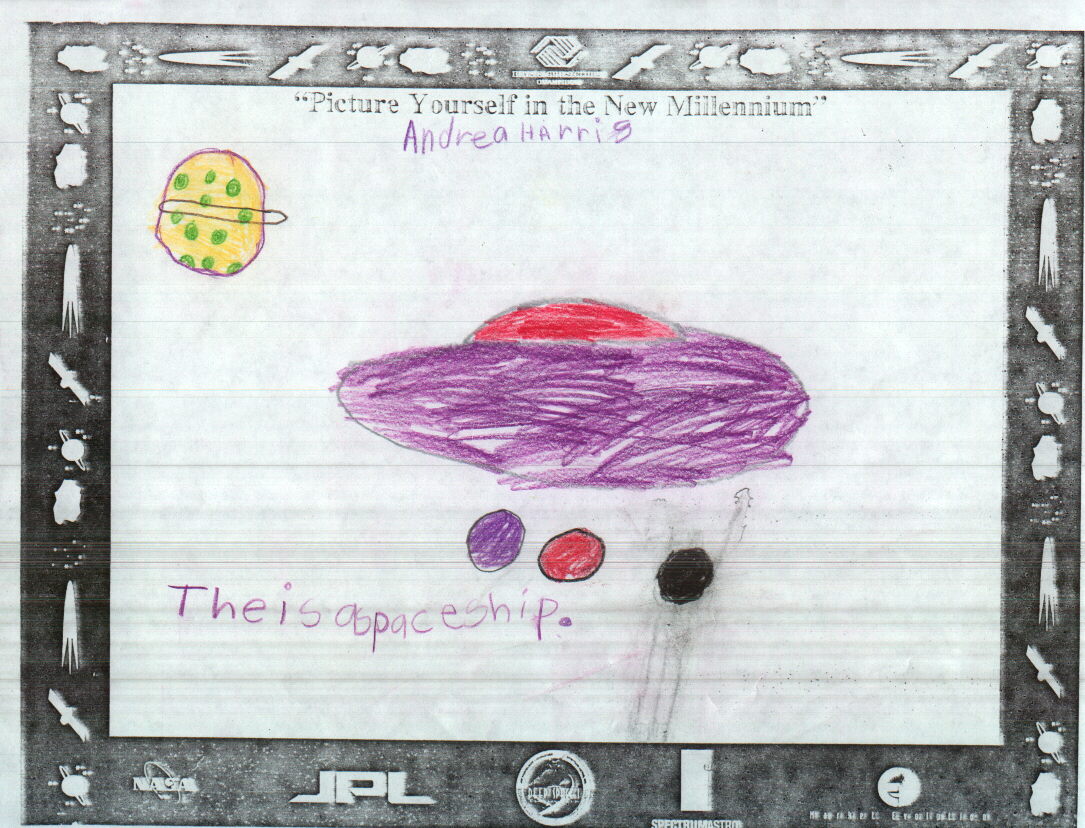 “Picture Yourself in the New Millennium”
Andrea HArris
The is a spaceship.
NASA
JPL
DEEP SPACE
SPECTRUMASTRO